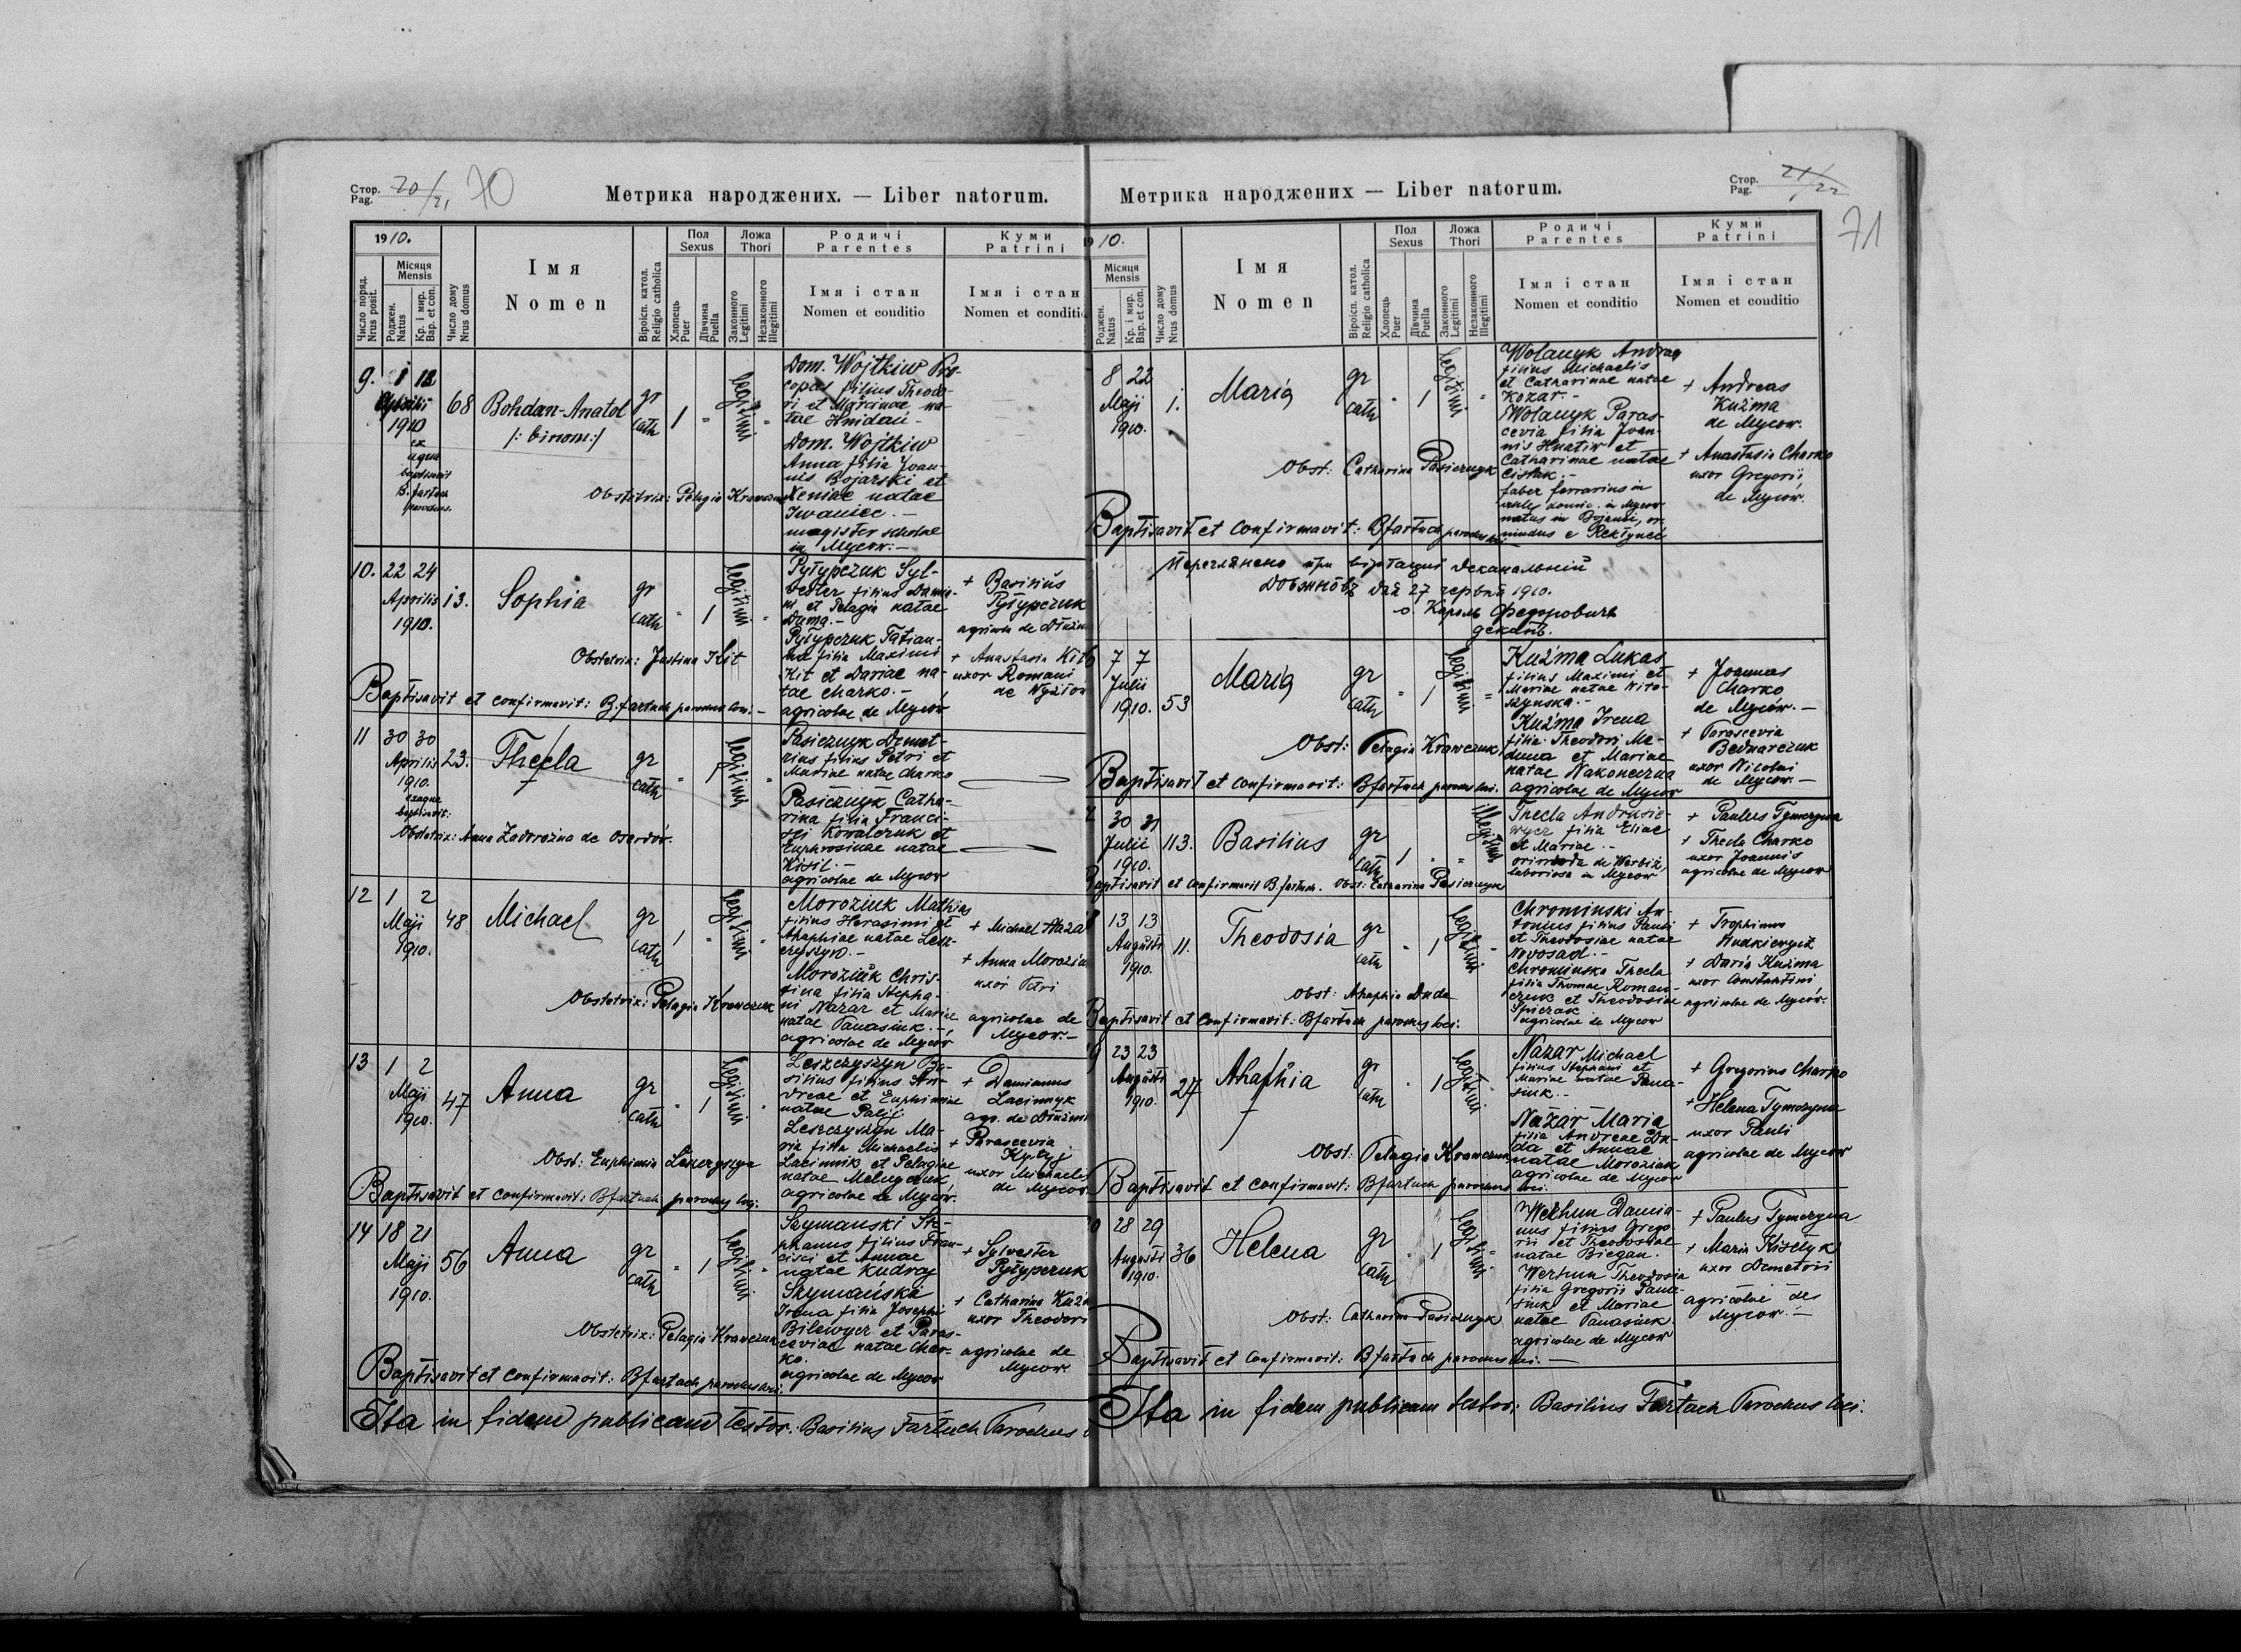 Стор. Pag. 20/21 70
Метрика народжених. — Liber natorum.
1910.
Число поряд. Nrus posit.
Місяця Mensis
Роджен. Natus
Кр. і мир. Bap. et con.
Число дому Nrus domus
Імя Nomen
Віроісп. катол. Religio catholica
Пол Sexus
Хлопець Puer
Дівчина Puella
Ложа Thori
Законного Legitimi
Незаконного Illegitimi
Родичі Parentes
Імя і стан
Nomen et conditio
Куми Patrini
Імя і стан
Nomen et conditio
9. 1 12 Aprilis 1910
ex aqua baptisavit B. Fartuch parochus.
68 Bohdan-Anatol
/: binom :/
gr cath 1 " legitimi "
Dom. Wojtkiw Pro-
copus filius Theodo-
ri et Marinae na-
tae Hnidan.-
Dom. Wojtkiw
Anna filia Joan-
nis Bojarski et
Xeniae natae
Iwaniec.-
magister scholae
in Mycow.-
Obstetrix: Pelagia Krawczuk
10. 22 24 Aprilis 1910. 13. Sophia
gr cath " 1 legitimi "
Pyłypczuk Syl-
vester filius Damia-
ni et Pelagia natae
Duma.-
Pyłypczuk Tatian-
na filia Maximi
Kit et Dariae na-
tae Charko.-
agricolae de Mycow
+ Basilius
Pyłypczuk
+ Anastasia Kit
uxor Romani
Obstetrix: Justina Kit
Baptisavit et confirmavit: B. Fartuch parochus loci.-
11 30 30 Aprilis 1910. 23. Thecla
ex aqua baptisavit:
gr cath " 1 legitimi "
Pasicznyk Demet-
rius filius Petri et
Mariae natae Charko
Pasicznyk Catha-
rina filia Franci-
sci Kowalczuk et
Euphrosinae natae
Kisil.-
agricolae de Mycow
Obstetrix: Anna Zadorożna de Oserdów.
12 1 2 Maji 1910. 48 Michael
gr cath 1 " legitimi "
Moroziuk Mathias
filius Herasimi et
Ahaphiae natae Lesz-
czyszyn.-
Moroziuk Chris-
tina filia Stepha-
ni Nazar et Mariae
natae Panasiuk.-
agricolae de Mycow
+ Michael Nazar
+ Anna Moroziuk
uxor Petri
agricolae de
Mycow.-
Obstetrix: Pelagia Krawczuk
13 1 2 Maji 1910. 47 Anna
gr cath " 1 legitimi "
Leszczyszyn Ba-
silius filius An-
dreae et Euphimiae
natae Palij.
Leszczyszyn Ma-
ria filia Michaelis
Lacinnik et Pelagiae
natae
agricolae de Mycow.
+ Damianus
Lacinnyk
+ Parascevia
uxor Michaelis
de Mycow
Obst: Euphimia Leszczyszyn
Baptisavit et confirmavit: B Fartuch parochus loci:
14 18 21 Maji 1910. 56 Anna
gr cath " 1 legitimi "
Szymanski Ste-
phanus filius Fran-
cisci et Annae
natae Kudraj
Szymańska
Irena filia Josephi
Bilewycz et Paras-
ceviae natae Char-
ko.
agricolae de Mycow
+ Sylvester
Pyłypczuk
+ Catharina Kuźma
uxor Theodori
agricolae de
Mycow.
Obstetrix: Pelagia Krawczuk
Baptisavit et confirmavit: B Fartuch parochus loci.
Ita in fidem publicam testor: Basilius Fartuch Parochus
Метрика народжених — Liber natorum.
Стор. Pag. 21/22 71
1910.
Місяця Mensis
Роджен. Natus
Кр. і мир. Bap. et con.
Число дому Nrus domus
Імя Nomen
Віроісп. катол. Religio catholica
Пол Sexus
Хлопець Puer
Дівчина Puella
Ложа Thori
Законного Legitimi
Незаконного Illegitimi
Родичі Parentes
Імя і стан
Nomen et conditio
Куми Patrini
Імя і стан
Nomen et conditio
8 22 Maji 1910. 1. Maria
gr cath " 1 legitimi "
Wolanyk Andreas
filius Michaelis
et Catharinae natae
Kozar.-
Wolanyk Paras-
cevia filia Joan-
nis Hnatiw et
Catharinae natae
Cislak.-
faber ferrarius in
in Mycow
+ Andreas
Kuźma
de Mycow.
+ Anastasia Charko
uxor Gregorii
de Mycow.
Obst: Catharina Pasicznyk
Baptisavit et confirmavit: B Fartuch parochus loci.
Переглянено при візітації деканальній
Довжнôвъ дня 27 червня 1910.
о. Кароль Федоровичъ
деканъ.
7 7 Julii 1910. 53 Maria
gr cath " 1 legitimi "
Kuźma Lukas
filius Maximi et
Mariae natae Wito-
szynska.-
Kuźma Irena
filia Theodori Me-
duna et Mariae
natae Nakoneczna
agricolae de Mycow
+ Joannes
Charko
de Mycow.-
+ Parascevia
Bednarczuk
uxor Nicolai
de Mycow.-
Obst: Pelagia Krawczuk
Baptisavit et confirmavit: B Fartuch parochus loci.
30 31 Julii 1910. 113. Basilius
gr cath 1 " " illegitimi
Thecla Andrusie-
wycz filia Eliae
et Mariae.-
oriunda de Warbiż,
laboriosa in Mycow
+ Paulus Tymczyna
+ Thecla Charko
uxor Joannis
agricolae de Mycow
Baptisavit et confirmavit B. Fartuch. Obst: Catharina Pasicznyk
13 13 Augusti 1910. 11. Theodosia
gr cath " 1 legitimi "
Chrominski An-
tonius filius Pauli
et Theodosiae natae
Novosad.-
Chrominska Thecla
filia Thomae Roman-
czuk et Theodosiae
Spiczak
agricolae de Mycow
+ Trophimus
+ Daria Kuźma
uxor Constantini
agricolae de Mycow.
Obst: Ahaphia Duda
Baptisavit et confirmavit: B Fartuch parochus loci.
23 23 Augusti 1910. 27 Ahaphia
gr cath " 1 legitimi "
Nazar Michael
filius Stephani et
Mariae natae Pana-
siuk.-
Nazar Maria
filia Andreae Du-
da et Annae
natae Moroziuk
agricolae de Mycow
+ Gregorius Charko
+ Helena Tymczyna
uxor Pauli
agricolae de Mycow
Obst: Pelagia Krawczuk
Baptisavit et confirmavit: B Fartuch parochus loci.
28 29 Augusti 1910. 36 Helena
gr cath " 1 legitimi "
Werhun Damia-
nus filius Grego-
rii et Theodosiae
natae Biegan.
Werhun Theodosia
filia Gregorii Pana-
siuk et Mariae
natae Panasiuk
agricolae de Mycow
+ Paulus Tymczyna
+ Maria Kiselyk
uxor Demetrii
agricolae de
Mycow.-
Obst: Catharina Pasicznyk
Baptisavit et confirmavit: B Fartuch parochus loci.-
Ita in fidem publicam testor: Basilius Fartuch Parochus loci.